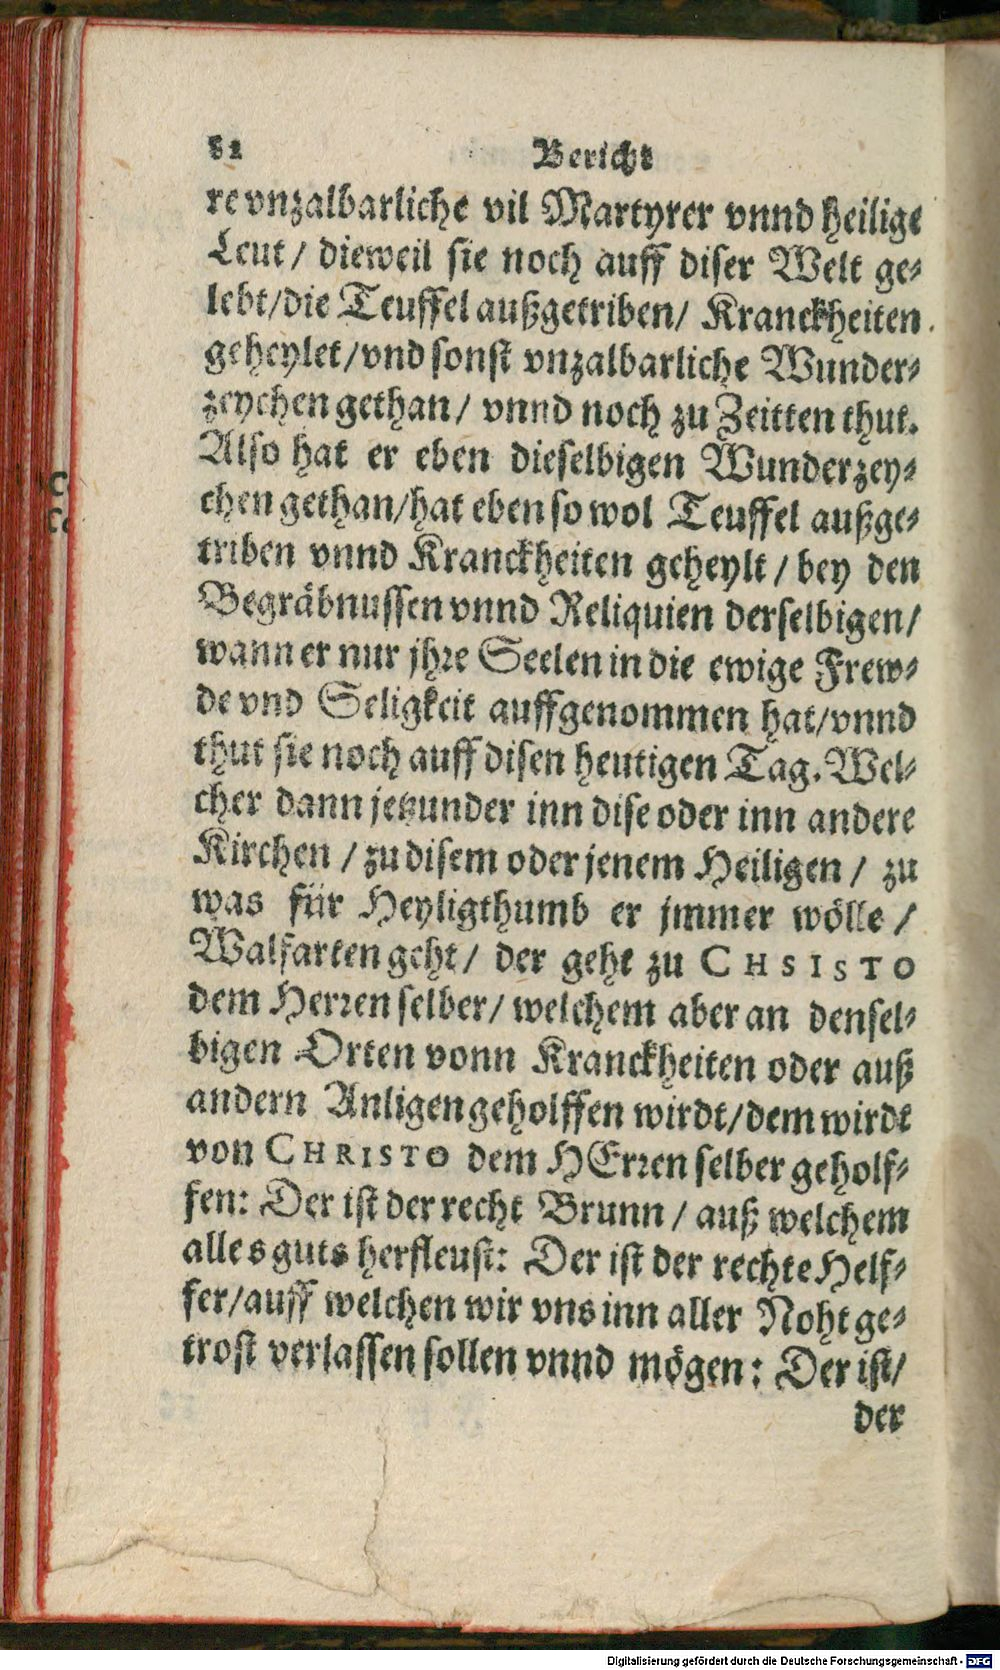 82 Bericht
re vnzalbarliche vil Martyrer vnnd heilige
Leut / dieweil sie noch auff diser Welt ge-
lebt/die Teuffel außgetriben/ Kranckheiten
geheylet/vnd sonst vnzalbarliche Wunder-
zeychen gethan/ vnnd noch zu Zeitten thut.
Also hat er eben dieselbigen Wunderzey-
chen gethan/hat eben so wol Teuffel außge-
triben vnnd Kranckheiten geheylt / bey den
Begräbnussen vnnd Reliquien derselbigen/
wann er nur jhre Seelen in die ewige Frew-
de vnd Seligkeit auffgenommen hat/vnnd
thut sie noch auff disen heutigen Tag. Wel-
cher dann jetzunder inn dise oder inn andere
Kirchen / zu disem oder jenem Heiligen / zu
was für Heyligthumb er jmmer wölle /
Walfarten geht/ der geht zu CHSISTO
dem Herren selber/ welchem aber an densel-
bigen Orten vonn Kranckheiten oder auß
andern Anligen geholffen wirdt/dem wirdt
von CHRISTO dem HErren selber geholf-
fen: Der ist der recht Brunn / auß welchem
alles guts herfleust: Der ist der rechte Helf-
fer/auff welchen wir vns inn aller Noht ge-
trost verlassen sollen vnnd mögen: Der ist/
der
Digitalisierung gefördert durch die Deutsche Forschungsgemeinschaft - DFG